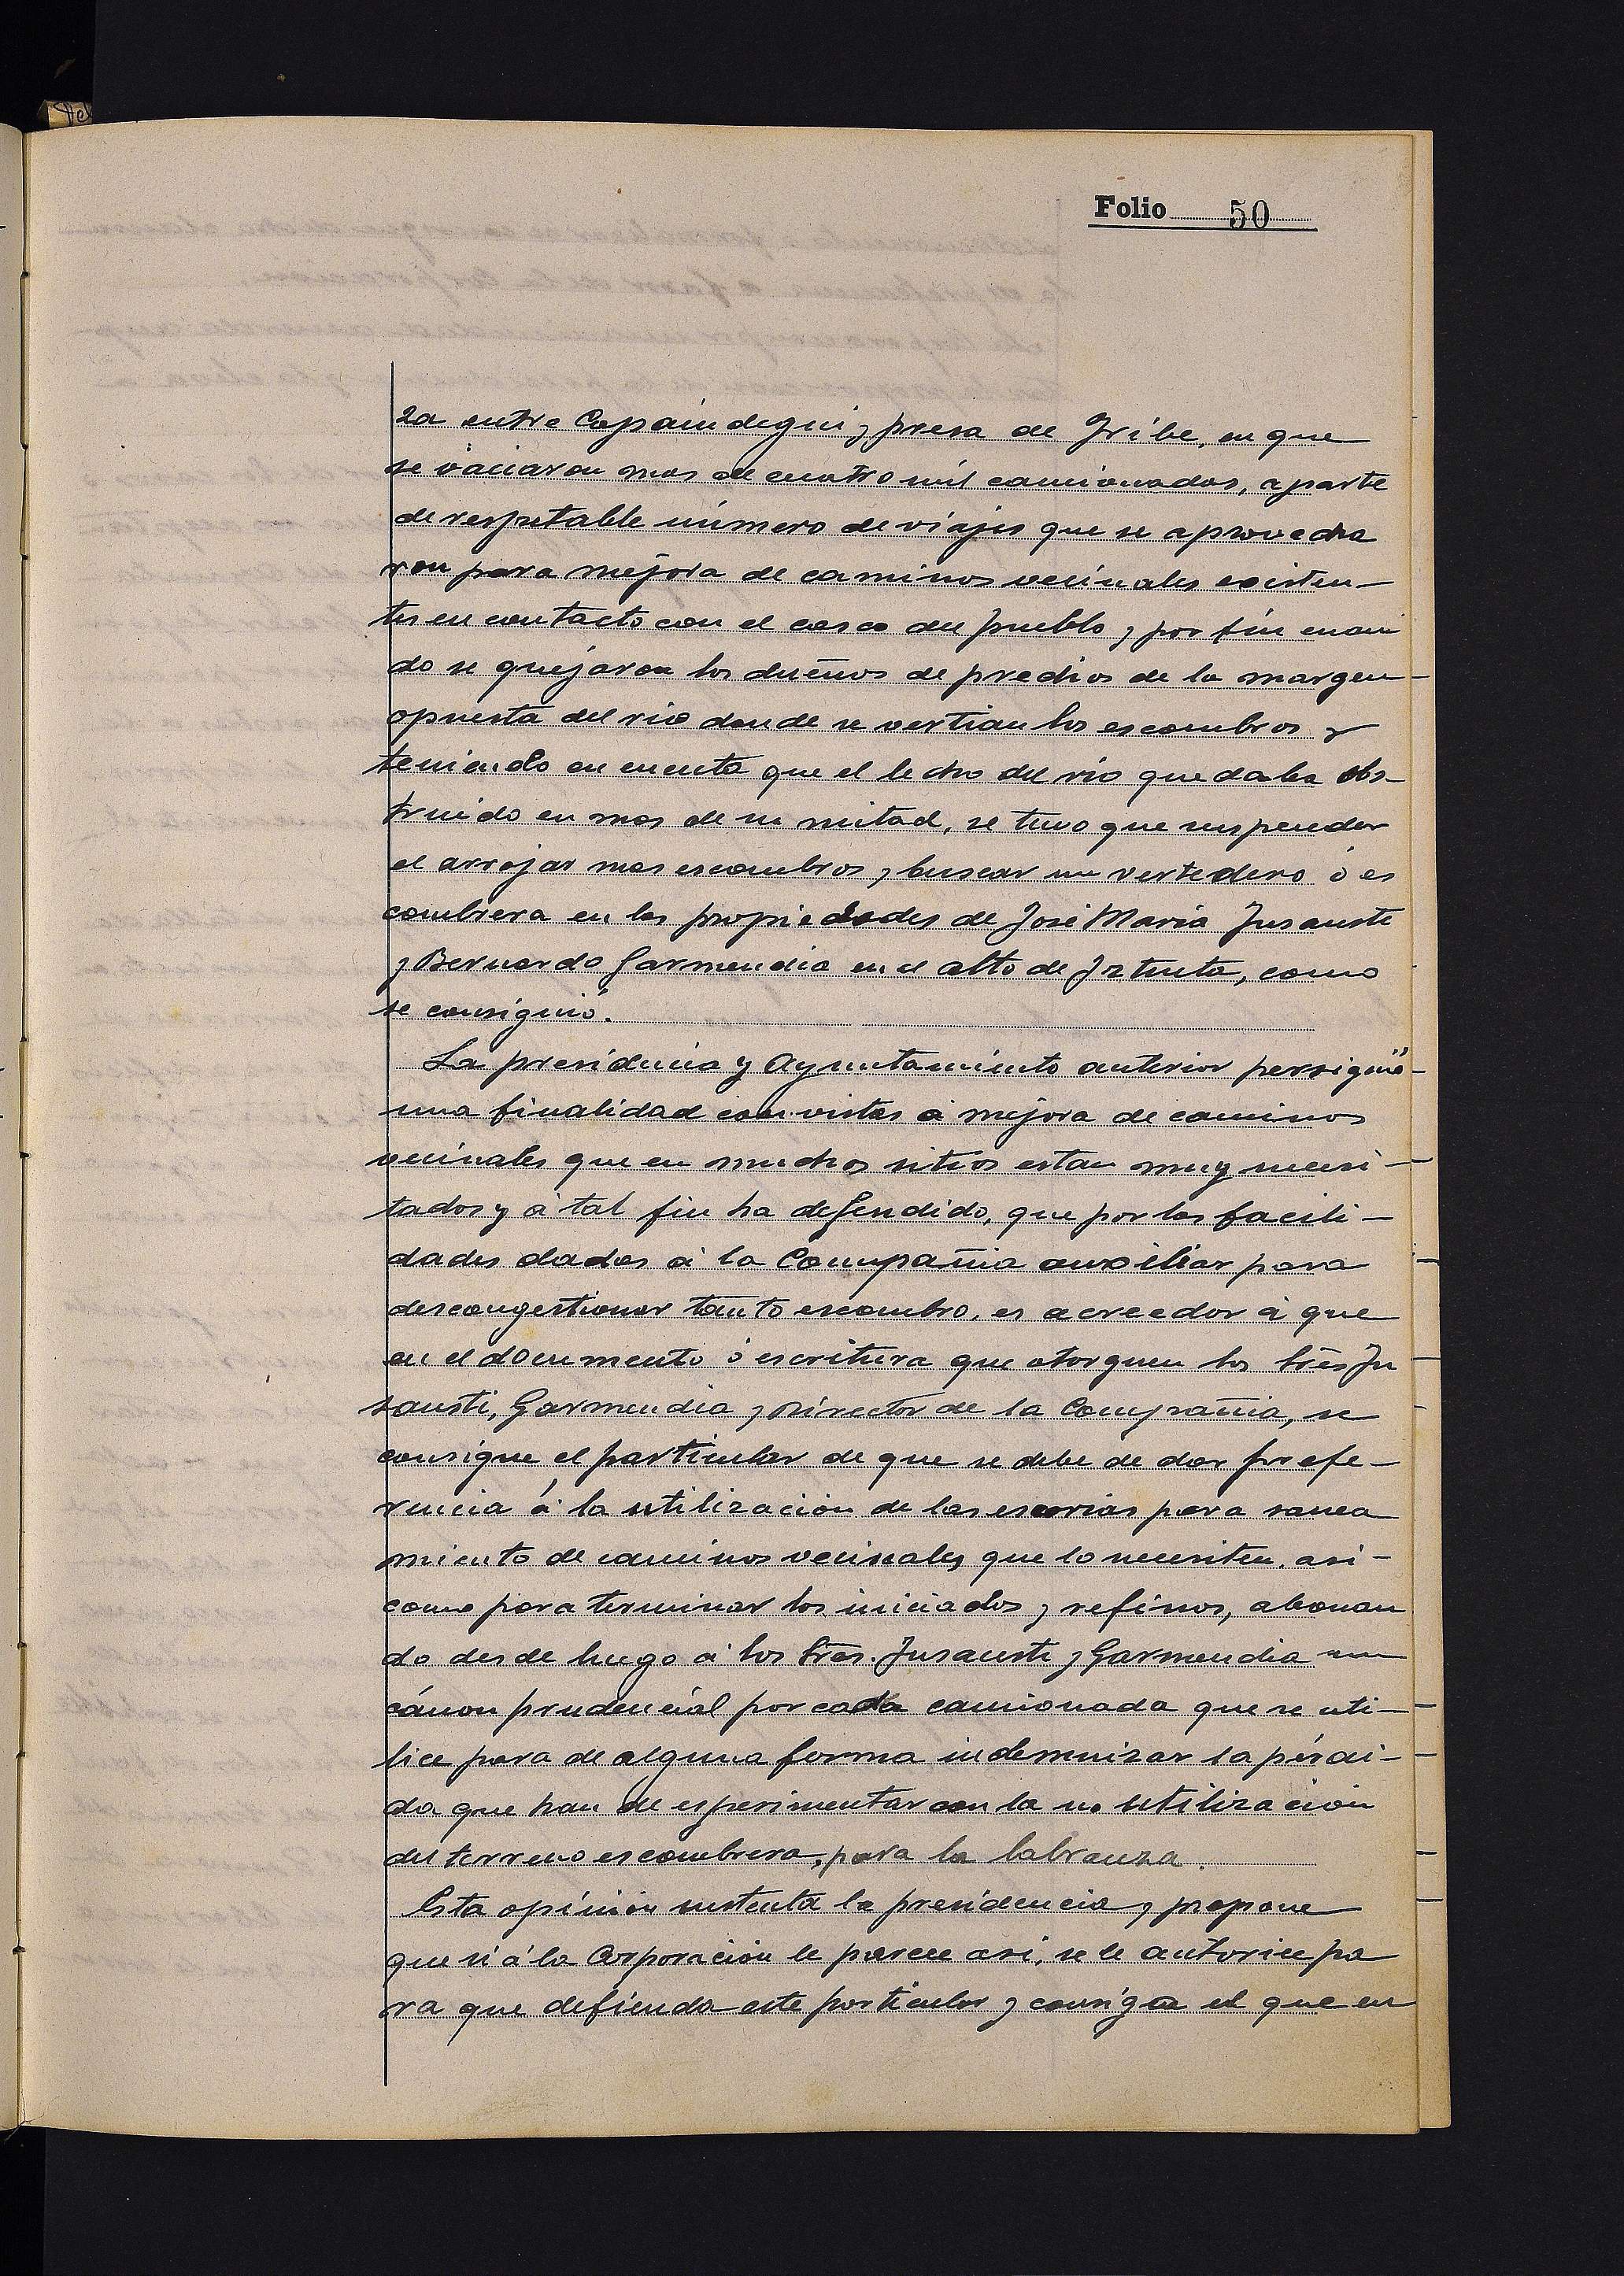 Folio 50
za entre Capaindegui y presa de Iribe, en que
se vaciaron mas de cuatro mil camionadas, aparte
de respetable número de viajes que se aprovecha
ron para mejora de caminos vecinales existen-
tes en contacto con el casco del pueblo y por fin cuan
do se quejaron los dueños de predios de la margen
opuesta del rio donde se vertian los escombros y
teniendo en cuenta que el lecho del rio quedaba obs-
truido en mas de su mitad, se tuvo que suspender
el arrojar mas escombros y buscar un vertedero ó es
combrera en las propiedades de José Maria Insausti
y Bernardo Garmendia en el alto de Iztueta, como
se consiguió.
La presidencia y Ayuntamiento anterior persiguió
una finalidad con vistas á mejora de caminos
vecinales que en muchos sitios estan muy necesi-
tados y á tal fin ha defendido, que por las facili-
dades dadas á la Compañia auxiliar para
descongestionar tanto escombro, es acreedor á que
en el documento ó escritura que otorguen los Sres In
sausti, Garmendia y Director de la Compañia, se
consigne el particular de que se debe de dar prefe-
rencia á la utilización de las escorias para sanea
miento de caminos vecinales que lo necesiten, asi-
como para terminar los iniciados y refinos, abonan
do desde luego á los Sres. Insausti y Garmendia un
cánon prudencial por cada camionada que se uti-
lice para de alguna forma indemnizar la pérdi-
da que han de esperimentar con la no utilización
del terreno escombrera, para la labranza.
Esta opinión sustenta la presidencia y propone
que si á la Corporación le parece asi, se le autorice pa
ra que defienda este particular y consiga el que en